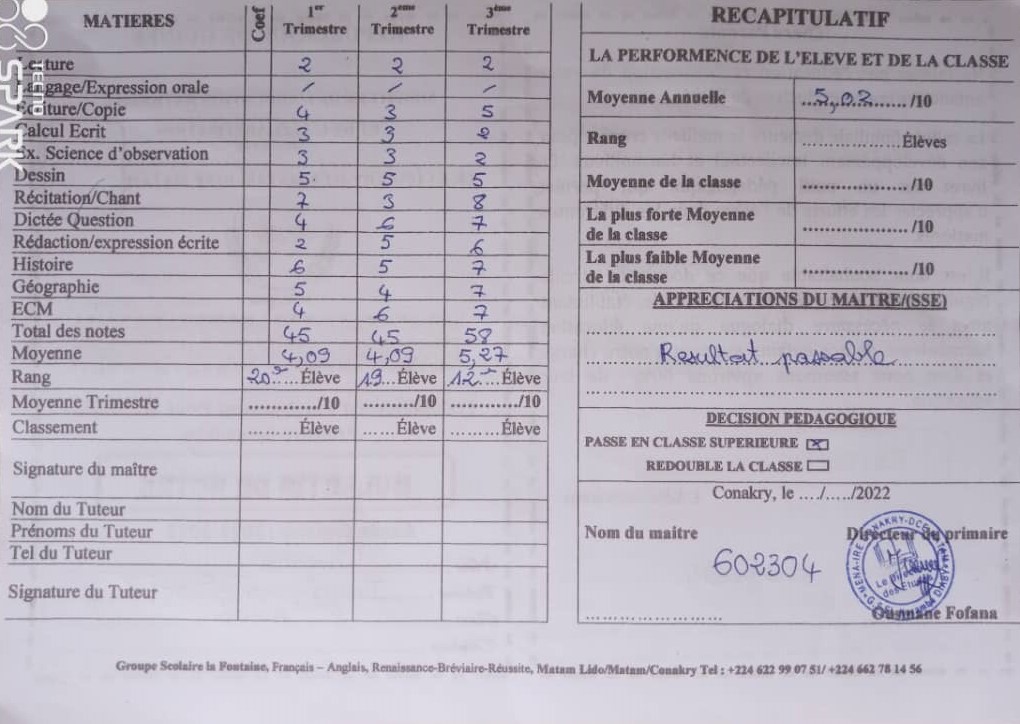 MATIERES Coef 1er Trimestre 2ème Trimestre 3ème Trimestre
Lecture 2 2 2
Langage/Expression orale / / /
Ecriture/Copie 4 3 5
Calcul Ecrit 3 3 2
Ex. Science d'observation 3 3 2
Dessin 5 5 5
Récitation/Chant 7 3 8
Dictée Question 4 6 7
Rédaction/expression écrite 2 5 6
Histoire 6 5 7
Géographie 5 4 7
ECM 4 6 7
Total des notes 45 45 58
Moyenne 4,09 4,09 5,27
Rang 20e....Élève 19...Élève 12e....Élève
Moyenne Trimestre ............/10 ........./10 ........../10
Classement ........Élève ......Élève ........Élève
Signature du maître
Nom du Tuteur
Prénoms du Tuteur
Tel du Tuteur
Signature du Tuteur
RECAPITULATIF
LA PERFORMENCE DE L'ELEVE ET DE LA CLASSE
Moyenne Annuelle ...5,02....... /10
Rang ....................Élèves
Moyenne de la classe ..................... /10
La plus forte Moyenne
de la classe ..................... /10
La plus faible Moyenne
de la classe ..................... /10
APPRECIATIONS DU MAITRE/(SSE)
Resultat passable
DECISION PEDAGOGIQUE
PASSE EN CLASSE SUPERIEURE ☒
REDOUBLE LA CLASSE ☐
Conakry, le …./…../2022
Nom du maitre Directeur du primaire
602304
Ousmane Fofana
Groupe Scolaire la Fontaine, Français – Anglais, Renaissance-Bréviaire-Réussite, Matam Lido/Matam/Conakry Tel : +224 622 99 07 51/ +224 662 78 14 56
TECNO
SPARK